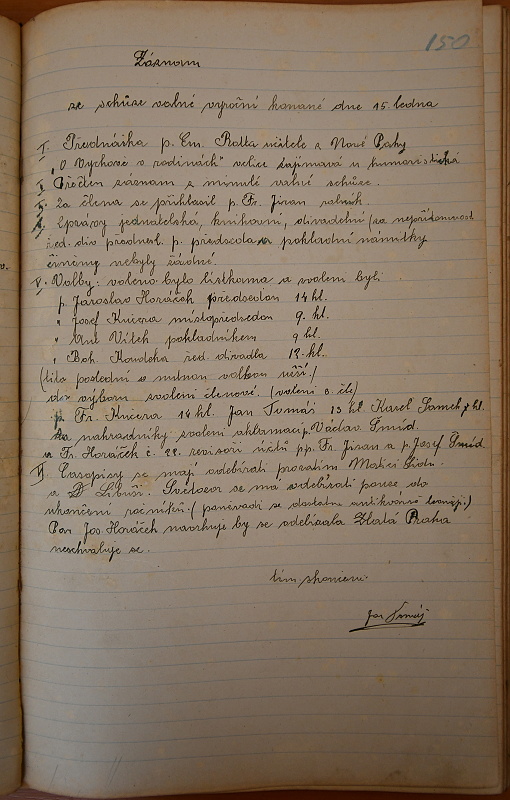 150
Záznam
ze schůze valné výroční konané dne 15. ledna
I. Přednáška p. Em. Ratta učitele z Nové Paky
„O Vychově v rodinách" velice zajímavá a humoristická
II. Přečten záznam z minulé valné schůze.
III. Za člena se přihlasil p. Fr. Jiran rolník.
IV. Zprávy jednatelská, knihovní, divadelní (za nepřítomnost
řed. div přednesl. p. předseda a pokladní námitky
činěny nebyly žádné.
V. Volby: voleno bylo lístkama a zvoleni byli
p. Jaroslav Horáček předsedou 14 hl.
" Josef Kučera místopředsedou 9. hl.
" Ant Vítek pokladníkem 9 hl.
" Boh. Koudelka řed. divadla 12. hl.
(tito poslední s nutnou volbou užší.)
do výboru zvoleni členové. (voleni 3. čle)
p. Fr. Kučera. 14 hl. Jan Tomáš 13 hl Karel hl.
za nahradníky zvoleni aklamací p. Václav Šmíd.
a Fr. Horáček č. 22. revisoři účtů pp. Fr. Jiran a p. Josef Šmíd.
VI. Časopisy se mají odebírati prozatím Matici Lidu.
a Libuši. Světozor se má odebírati pouze do
ukončení ročníku. (poněvadž se dostane antikvárně )
Pan Jos. Horáček navrhuje by se odebírala Zlatá Praha
neschvaluje se.
tím skončeno.
Jan Tomáš